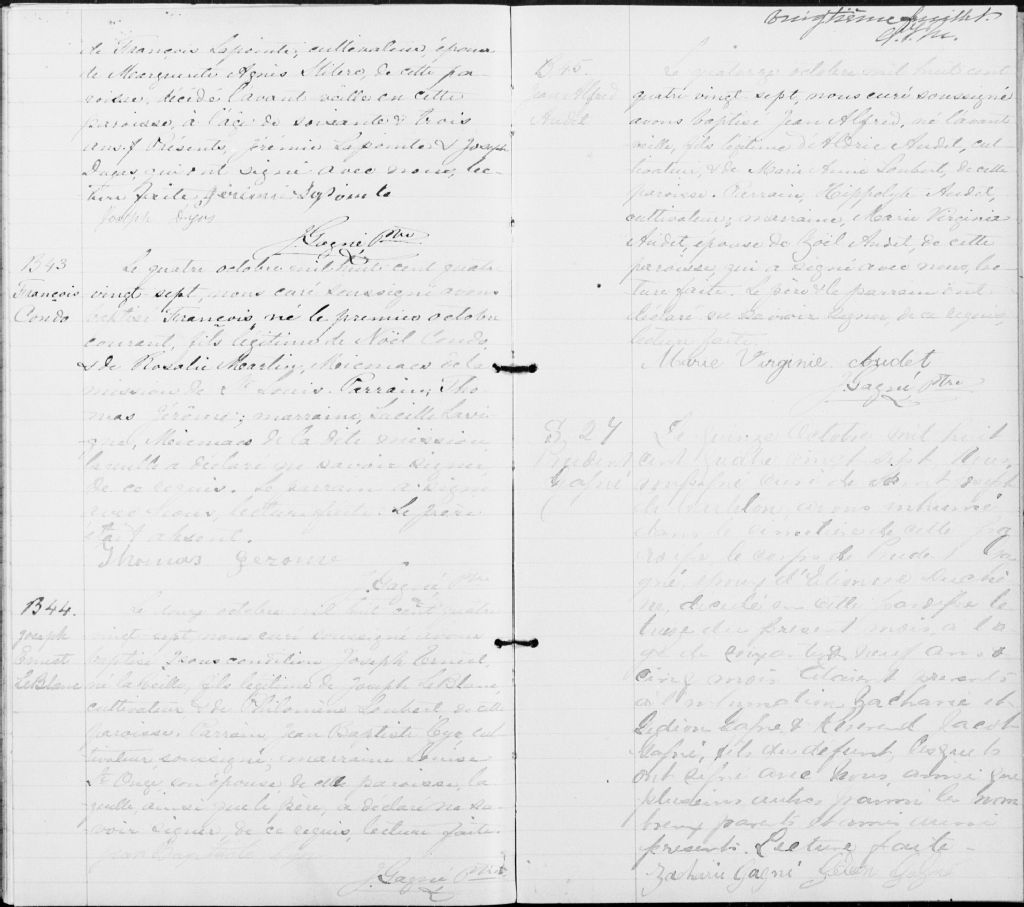 de François Lapointe, cultivateur, époux
de Marguerite Agnès, de cette pa-
roisse, décédé l'avant veille en cette
paroisse, à l'âge de soixante & trois
ans. Présents, Jérémie Lapointe & Joseph
Dugas, qui ont signé avec nous, lec-
ture faite. Jérémi Lapointe
Joseph Dugas
J. Gagné Ptre
B43
François
Condo
Le quatre octobre mil huit cent quatre
vingt-sept, nous curé soussigné avons
baptisé François, né le premier octobre
courant, fils légitime de Noël Condo,
& de Rosalie Martin, Micmacs de la
mission de St Louis. Parrain, Tho-
mas Jérôme; marraine, Lavi-
gne, Micmacs de la dite mission
laquelle a déclaré ne savoir signer
de ce requis. Le parrain a signé
avec nous, lecture faite. Le père
était absent.
Thomas Gerome
J. Gagné Ptre
B44.
Joseph
Ernest
LeBlanc
Le onze octobre mil huit cent quatre
vingt-sept, nous curé soussigné avons
baptisé sous condition Joseph Ernest,
né la veille, fils légitime de Joseph LeBlanc,
cultivateur & de Philomène Loubert, de cette
paroisse. Parrain, Jean Baptiste Cyr cul-
tivateur soussigné, marraine Louise
St Onge son épouse de cette paroisse, la
quelle, ainsi que le père, a déclaré ne sa-
voir signer, de ce requis, lecture faite.
Jean Baptiste Cyr
J. Gagné Ptre
vingtième Juillet.
B45.
Jean Alfred
Audet
Le quatorze octobre mil huit cent
quatre vingt sept, nous curé soussigné
avons baptisé Jean Alfred, né l'avant
veille, fils légitime d'Aldric Audet, cul-
tivateur, & de Marie Anne Loubert, de cette
paroisse. Parrain, Hippolyte Audet,
cultivateur; marraine, Marie Virginie
Audet, épouse de Zoël Audet, de cette
paroisse, qui a signé avec nous, lec-
ture faite. Le père & le parrain ont
déclaré ne savoir signer, de ce requis,
lecture faite.
Marie Virginie Audet
J. Gagné Ptre
S. 24
Prudent
Gagné
Le quinze Octobre mil huit
cent quatre vingt sept Nous
soussigné curé de Saint Joseph
de Carleton, avons inhumé
dans le cimetière de cette pa
roisse le corps de Prudent Ga
gné, époux d'Étiennette Duchê
ne, décédé en cette paroisse le
treize du présent mois à l'â
ge de soixante & neuf ans &
cinq mois. Étaient présents
à l'inhumation Zacharie et
Gédéon Gagné & Révérend Jacob
Gagné, fils du défunt, lesquels
ont signé avec Nous ainsi que
plusieurs autres parmi les nom
breux parents et amis aussi
présents. Lecture faite -
Zacharie Gagné Gédéon Gagné